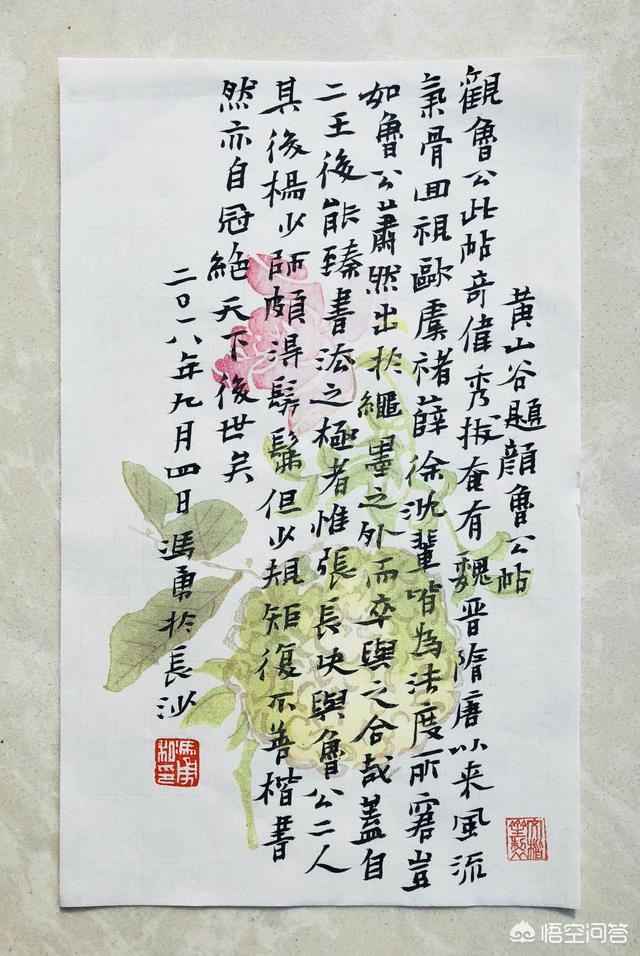 黄山谷題顔魯公帖
觀魯公此帖奇偉秀拔奄有魏晋隋唐以来風流
氣骨回視歐虞褚薛徐沈輩皆為法度所窘豈
如魯公蕭然出於繩墨之外而卒與之合哉蓋自
二王後能臻書法之極者惟張長史與魯公二人
其後楊少師頗得髣髴但少規矩復不善楷書
然亦自冠絶天下後世矣
二〇一八年九月四日馮勇於長沙
悟空问答